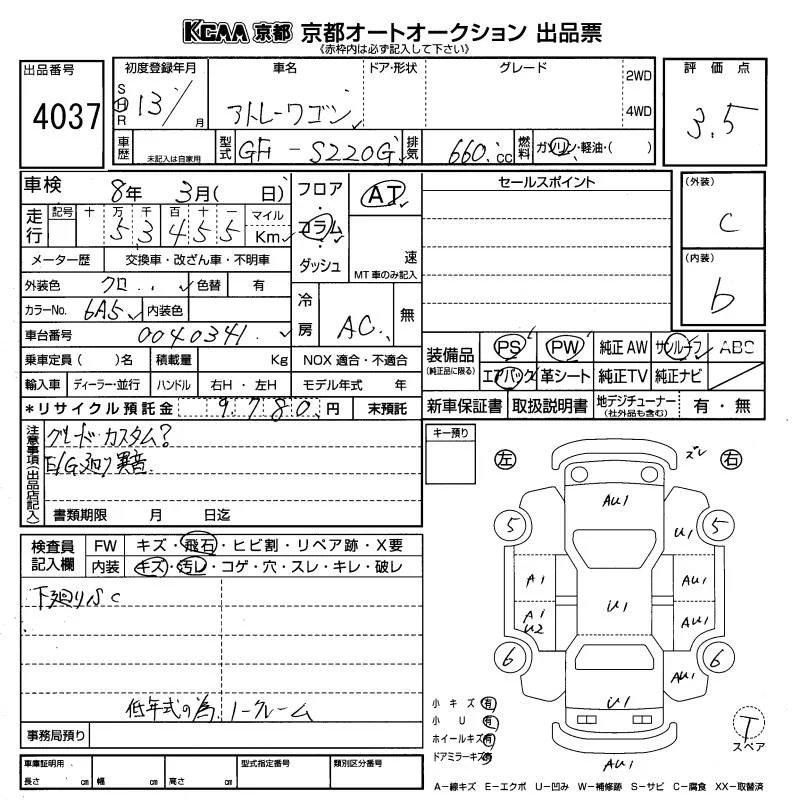 KCAA 京都 京都オートオークション 出品票
《赤枠内は必ず記入して下さい》
出品番号
4037
初度登録年月 車名 ドア・形状 グレード
S H R 13/ 月 アトレーワゴン 2WD 4WD
車歴 未記入は自家用 型式 GH-S220G 排気 660.cc 燃料 ガソリン・軽油・( )
評価点
3.5
車検 8年 3月( 日)
走行 記号 十 万 千 百 十 一 マイル Km
5 3 4 5 5
メーター歴 交換車・改ざん車・不明車
外装色 クロ 色替 有
カラーNo. 6A5 内装色
車台番号 0040341
乗車定員( )名 積載量 Kg NOX 適合・不適合
輸入車 ディーラー・並行 ハンドル 右H・左H モデル年式 年
*リサイクル預託金 9,780 円 未預託
フロア・コラム・ダッシュ
AT
速
MT車のみ記入
冷房 AC 無
セールスポイント
(外装)
C
(内装)
b
装備品
(純正品に限る)
PS PW 純正AW サンルーフ ABS
エアバック 革シート 純正TV 純正ナビ
新車保証書 取扱説明書 地デジチューナー(社外品も含む) 有・無
注意事項(出品店記入)
グレード カスタム?
E/G廻り異音
書類期限 月 日迄
キー預り
左 右
ズレ
検査員記入欄
FW キズ・飛石・ヒビ割・リペア跡・X要
内装 キズ・汚レ・コゲ・穴・スレ・キレ・破レ
下廻りSC
低年式の為ノークレーム
事務局預り
AU1
5 5
U1
A1 AU1
U1
A1 U2 AU1
6 6
AU1
U1
AU1
小キズ 有
小U 有
ホイールキズ 有
ドアミラーキズ 有
T
スペア
車庫証明用 型式指定番号 類別区分番号
長さ cm 幅 cm 高さ cm
A−線キズ E−エクボ U−凹み W−補修跡 S−サビ C−腐食 XX−取替済